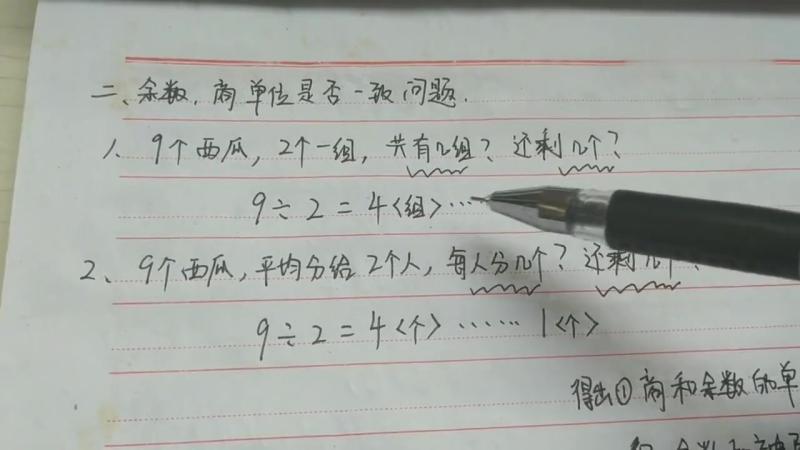 二、余数,商单位是否一致问题.
1、9个西瓜,2个一组,共有几组?还剩几个?
9÷2=4<组>…
2、9个西瓜,平均分给2个人,每人分几个?还剩几个?
9÷2=4<个>……1<个>
得出①商和余数的单